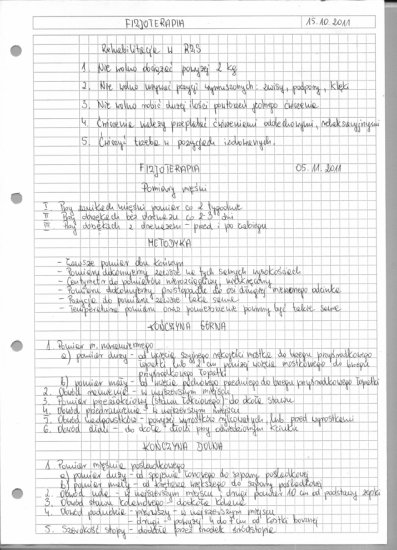 FIZJOTERAPIA 15.10.2011
Rehabilitacja w RZS
1. Nie wolno obciążać powyżej 2 kg
2. Nie wolno używać pozycji wymuszonych: zwisy, podpory, klęki
3. Nie wolno robić dużej ilości powtórzeń jednego ćwiczenia
4. Ćwiczenia należy przeplatać ćwiczeniami oddechowymi, relaksacyjnymi
5. Ćwiczyć trzeba w pozycjach izolowanych.
FIZJOTERAPIA 05.11.2011
Pomiary mięśni
I Przy zanikach mięśni pomiar co 2 tygodnie
II Przy obrzękach bez drenażu co 2-3 dni
III Przy obrzękach z drenażem - przed i po zabiegu
METODYKA
- Zawsze pomiar obu kończyn
- Pomiary dokonujemy zawsze na tych samych wysokościach
- Centymetr do pomiarów nierozciągliwy,
- Pomiaru dokonujemy prostopadle do osi długiej mierzonego odcinka
- Pozycja do pomiaru zawsze taka sama
- Temperatura pomiaru oraz pomieszczenie powinny być takie same
KOŃCZYNA GÓRNA
1. Pomiar m. naramiennego
a) pomiar duży - od wcięcia szyjnego rękojeści mostka do brzegu przyśrodkowego
łopatki lub 2 cm poniżej wcięcia mostkowego do brzegu
przyśrodkowego łopatki
b) pomiar mały - od wcięcia pachowego przedniego do brzegu przyśrodkowego łopatki
2. Obwód ramienia - w najszerszym miejscu
3. Pomiar przedramienny (stawu łokciowego) - do okoła stawu
4. Obwód przedramienia - w najszerszym miejscu
5. Obwód nadgarstków - powyżej wyrostków rylcowatych, lub przed wyrostkami
6. Obwód dłoni - do okoła dłoni przy odwiedzionym kciuku
KOŃCZYNA DOLNA
1. Pomiar mięśnia pośladkowego
a) pomiar duży - od spojenia łonowego do szpary pośladkowej
b) pomiar mały - od krętarza większego do szpary pośladkowej
2. Obwód uda - w najszerszym miejscu, drugi pomiar 10 cm od podstawy rzepki
3. Obwód stawu kolanowego - dookoła kolana
4. Obwód podudzia - pierwszy - w najszerszym miejscu
- drugi - powyżej 4 do 7 cm od kostki bocznej
5. Szerokość stopy - dookoła przez środek śródstopia